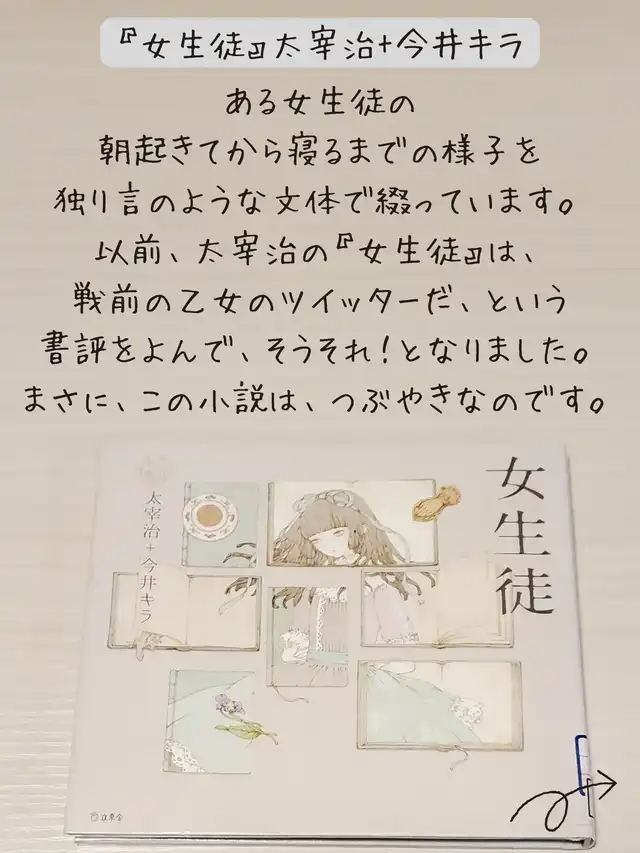 『女生徒』太宰治+今井キラ
ある女生徒の
朝起きてから寝るまでの様子を
独り言のような文体で綴っています。
以前、太宰治の『女生徒』は、
戦前の乙女のツイッターだ、という
書評をよんで、そうそれ！となりました。
まさに、この小説は、つぶやきなのです。
女生徒
太宰治+今井キラ
立東舎